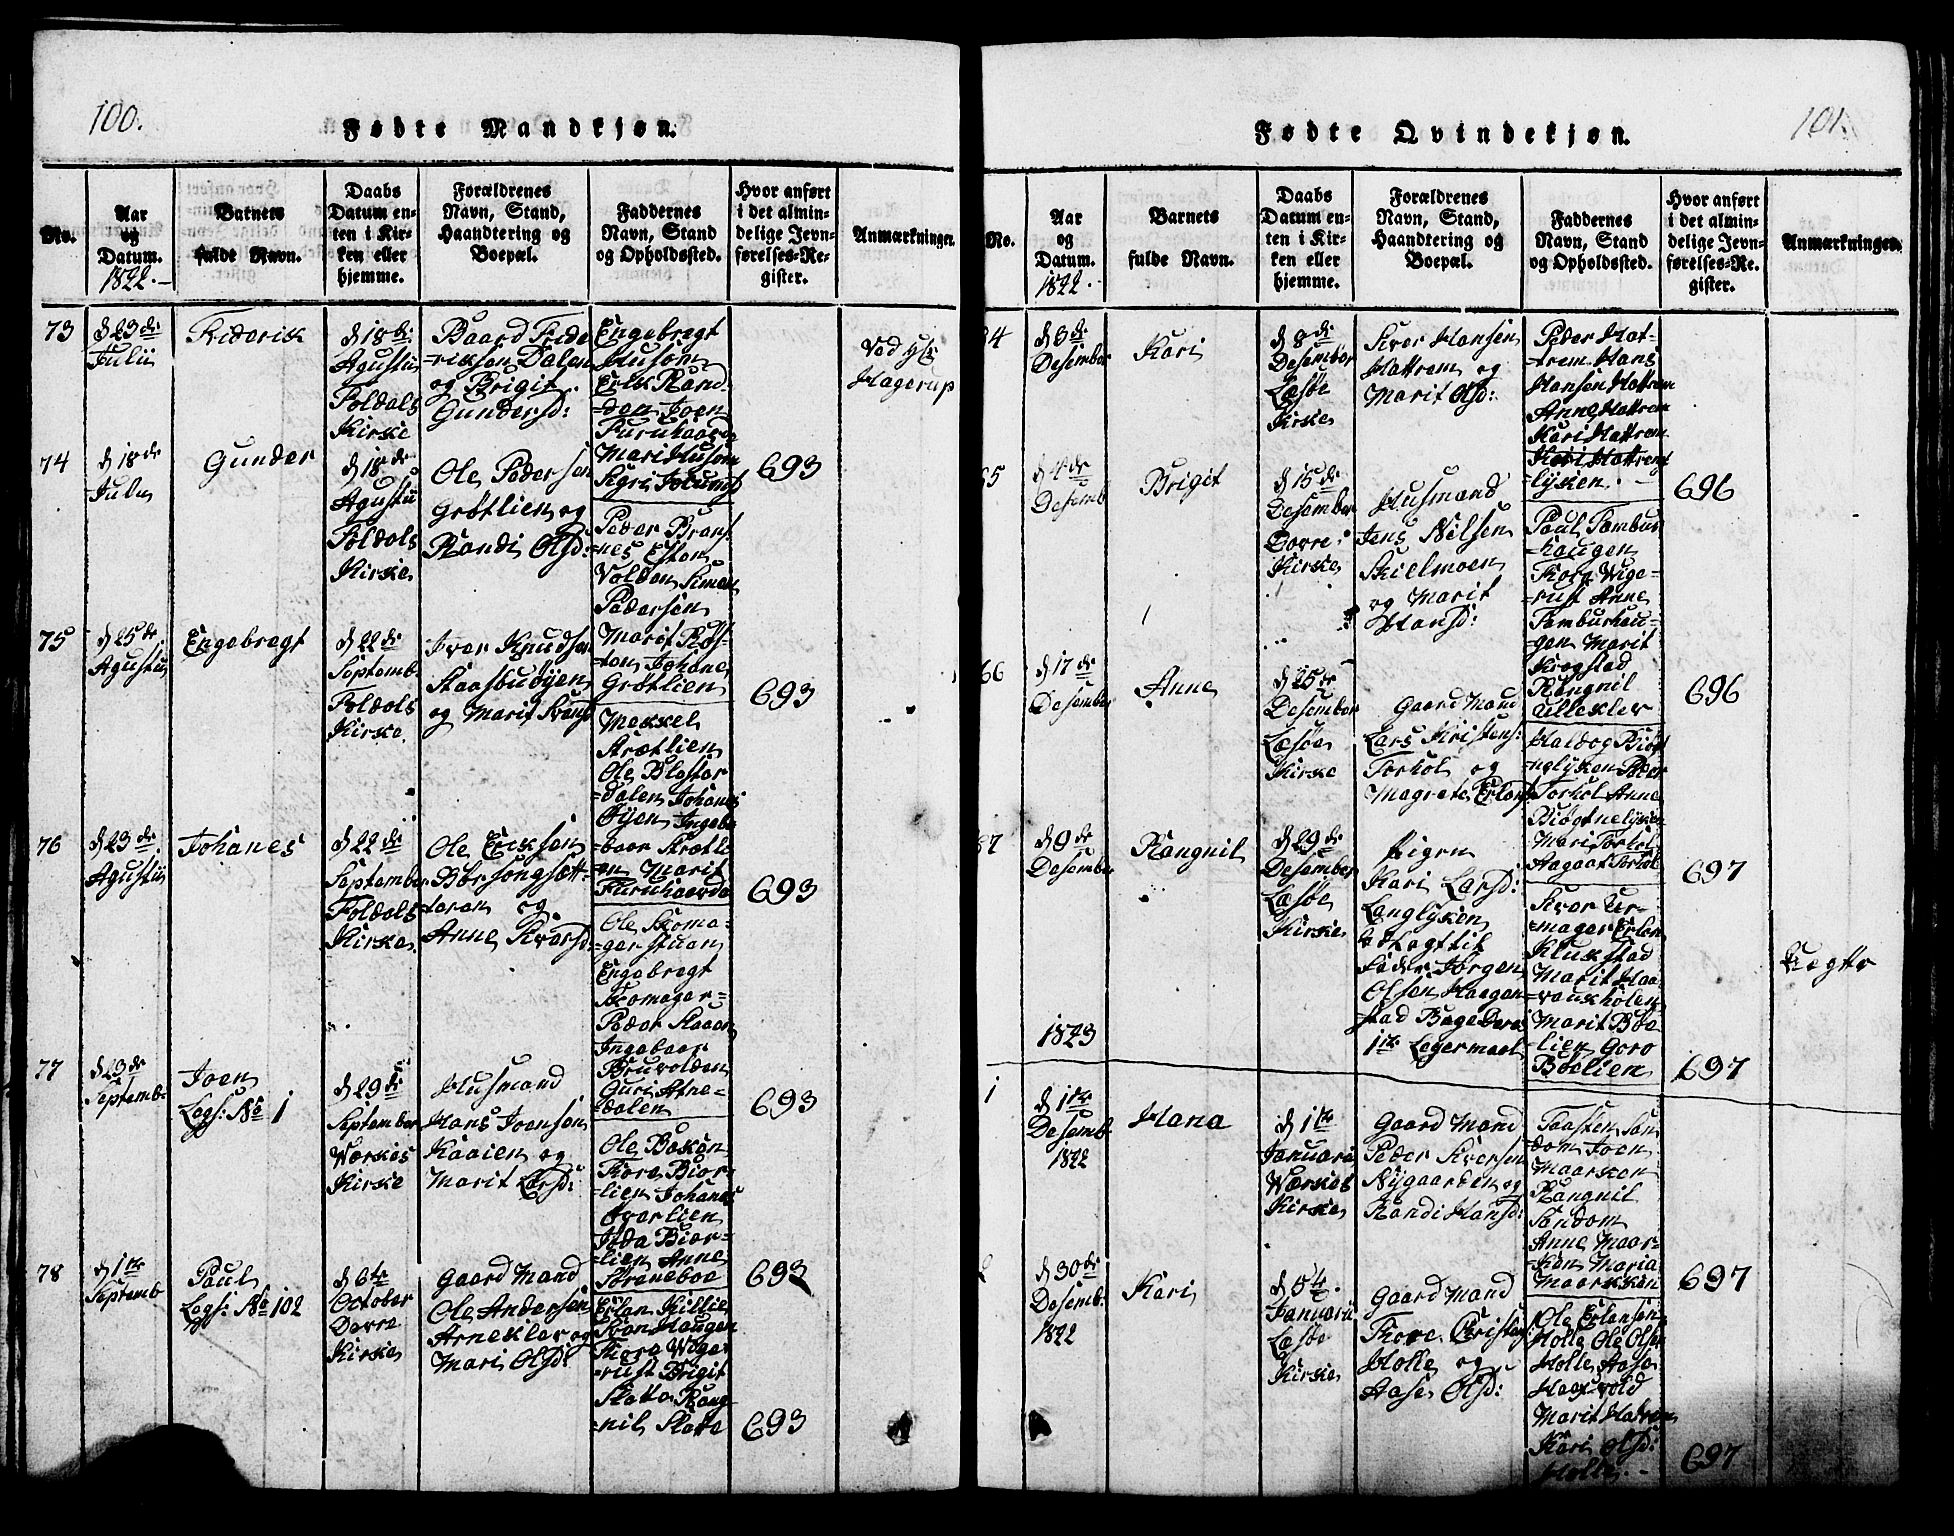 100.
Fødte Mandkjøn.
No.
Aar
og
Datum.
1822.
Barnets
fulde Navn.
Daabs
Datum en-
ten i Kir-
ken eller
hjemme.
Forældrenes
Navn, Stand,
Haandtering og
Boepæl.
Faddernes
Navn, Stand
og Opholdssted.
Hvor anført
i det almin-
delige Jevn-
førelses-Re-
gister.
Anmærkninger.
73
d 23de
Julii
Friderik
d 18de
Agustii
Foldals
Kirke
Baard Fride
=riksen Dalen
og Brigit
Gundersd:
Engebregt
Husom
Erik Rand
=den Joen
Furuhaarde
Mari Husom
693
74
d 18de
Gunder
d 18de
Agustii
Foldals
Kirke
Ole Pedersen
Grøtlien og
Randi Olsd:
Peder Brans
=nes Esten
Volden Simen
Pedersen
Marit Røs-
=ten Johane
Grøtlien
693
75
d 25de
Agustii
Engebregt
d 22de
Septemb.
Foldals
Kirke
Iver Knudsen
Staasbuøyen
og Marit
Mekkel
Krøtlien
Ole Blester
=dalen Johanes
Øyen Ingebo
=boer Krøtli
=en Marit
Furuhaarde
693
76
d 23de
Agustii
Johanes
d 22de
September
Foldals
Kirke
Ole Ericksen
Børsongsætt-
=teren og
Anne Iversd:
Ole Skoma-
=gerstuen
Engebregt
Skomager=
Peder
Ingeboer
Bruvolden
Guri Atne=
=dalen
693
77
d 23de
Septemb.
Joen
Legs: No 1
d 29de
September
Werkes
Kirke
Husmand
Hans Joensen
Kaaien og
Marit Larsd:
Ole Bekken
Tore Bior-
=lien Johanes
Iverlien
Ilda Bior-
=lien Anne
Breneboe
693
78
d 1te
Septemb
Paul
Legs: No 102
d 6te
October
Dovre
Kirke
Gaard Mand
Ole Andersen
Arneklev og
Mari Olsd:
Erlan Killie
Sven Haugen
Tore Wige
=rust Brigit
Slette Rang
=nil Slette
693
Ved Hr
Hagerup
101.
Fødte Qvindekjøn.
No.
Aar
og
Datum.
1822.
Barnets
fulde Navn.
Daabs
Datum en-
ten i Kir-
ken eller
hjemme.
Forældrenes
Navn, Stand,
Haandtering og
Boepæl.
Faddernes
Navn, Stand
og Opholdssted.
Hvor anført
i det almin-
delige Jevn-
førelses-Re-
gister.
Anmærkninger.
4
d 3de
Desember
Kari
d 8de
Desember
Læsøe
Kirke
Iver Hansen
Hattrem og
Marit Olsd:
Peder Hat-
trem Hans
Hansen Hattrem
Anne Hattrem
Kari Hattrem
Kari Hattrem
=lyken.
696
5
d 4de
Desemb
Brigit
d 15de
Desember
Dovre
Kirke
Husmand
Jens Nilsen
Skielmoen
og Marit
Hansd:
Paul Tambur
=haugen
Tore Wige=
=rust Anne
Tamburhau-
gen Marit
Krogstad
Rangnil
Ullekler
696
66
d 17de
Desember
Anne
d 25de
Desember
Læsøe
Kirke
Gaard Mand
Lars Kristens:
Torhol og
Magrete Erlens
Haldog Biøgt
=nelyken Peder
Torhol Anne
Biøgtnelyken
Mari Torhol
Aagaat Torhol
697
7
d 9de
Desember
Rangnil
d 29de
Desember
Læsøe
Kirke
Pigen
Kari Larsd:
Langlyken
Fader Jørgen
Olsen Haagen
stad Begge Deres
1te Legermaal
Iver Ur-
=mager Erlan
Klukstad
Marit Haa
=veukholen
Marit Bøe
=lien Goro
Bøelien
697
Uegte
1823
1
d 1te
Desemb.
1822
Hana
d 1te
Januarii
Werkes
Kirke
Gaard Mand
Peder Iversen
Nygaarden og
Randi Hansd:
Taasten San
=dom Joen
Maarken
Rangnil
Sandom
Anne Maar-
=ken Maria
Maarkken
697
2
d 30de
Desemb.
1822
Kari
d 5te
Januarii
Læsøe
Kirke
Gaard Mand
Tore Christens
Holle og
Aase Olsd:
Ole Erlensen
Holle Ole Olsen
Holle Aase
Haagvold
Marit Hatrem
Kari Olsd:
Holle.
697